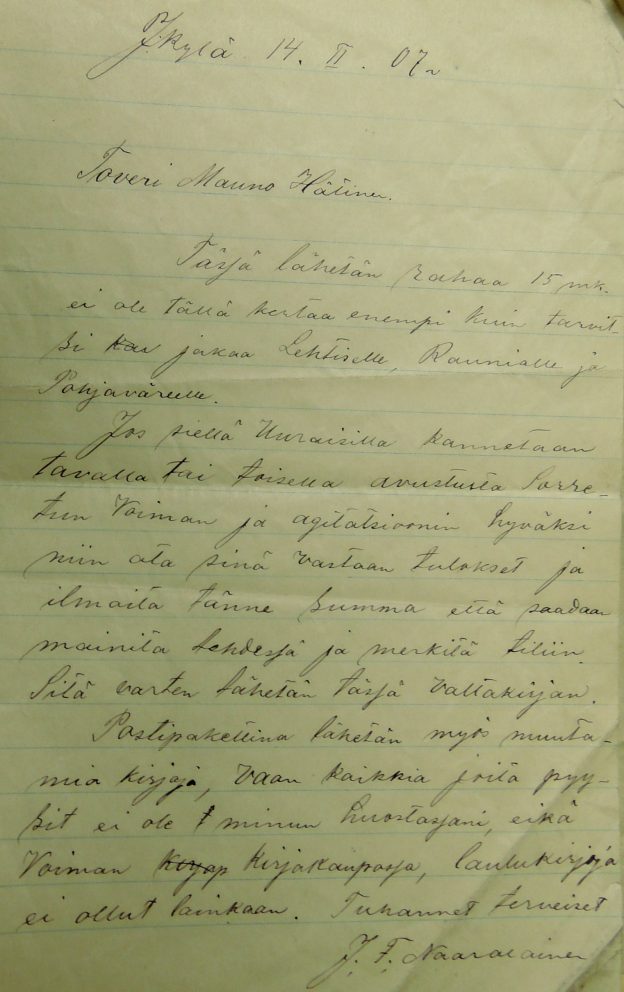 J:kylä 14. II. 07.
Toveri Mauno Hätinen.
Tässä lähetän rahaa 15 mk.
ei ole tällä kertaa enempi kuin tarvit-
si kau jakaa Lehtiselle, Rauniolle ja
Pohjaväreelle.
Jos siellä Uuraisilla kannetaan
tavalla tai toisella avustusta Sorre-
tun Voiman ja agitatsioonin hyväksi
niin ota sinä vastaan tulokset ja
ilmoita tänne summa että saadaan
mainita lehdessä ja merkitä tiliin.
Sitä varten lähetän tässä valtakirjan.
Postipakettina lähetän myös muuta-
mia kirjoja, vaan kaikkia joita pyy-
sit ei ole minun huostassani, eikä
Voiman kirjakaupassa, laulukirjoja
ei ollut lainkaan. Tuhannet terveiset
J. F.